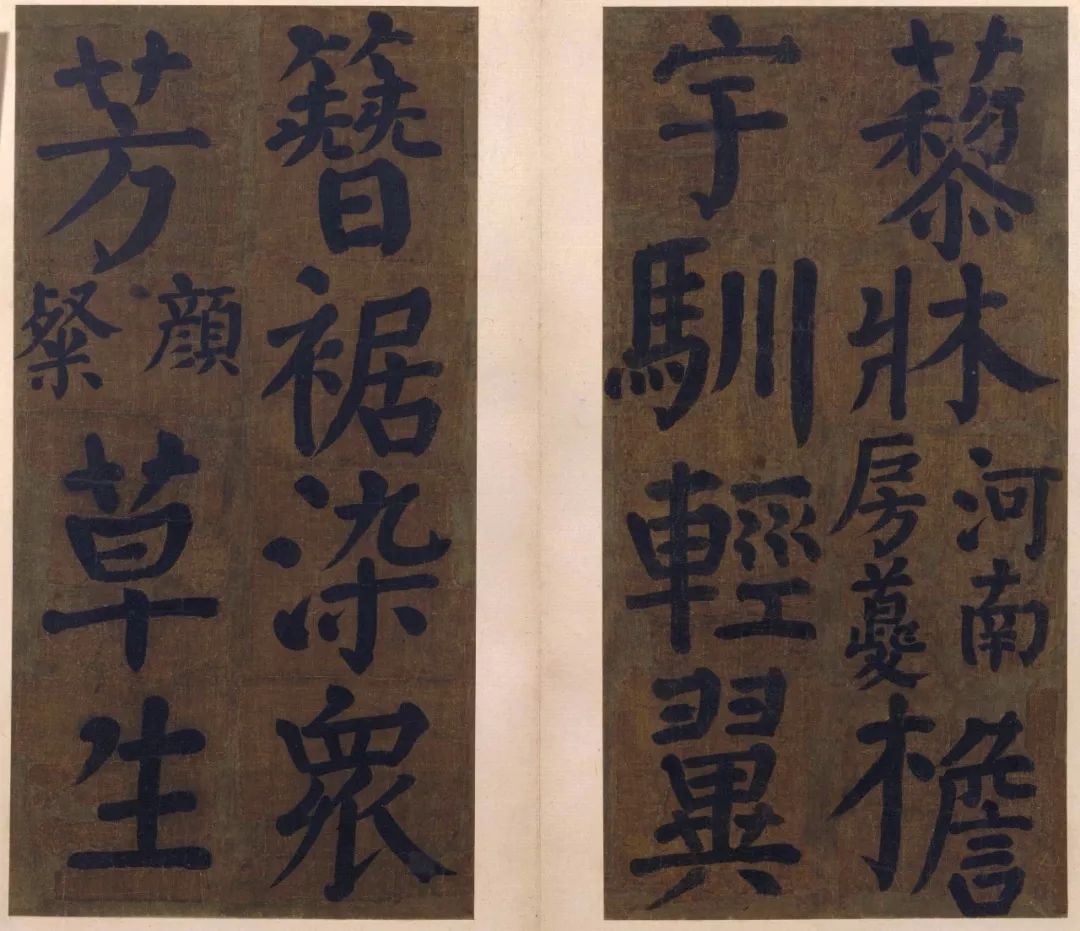 藜牀河南房夔檐
宇馴輕翼
簪裾染眾
芳顏粲草生